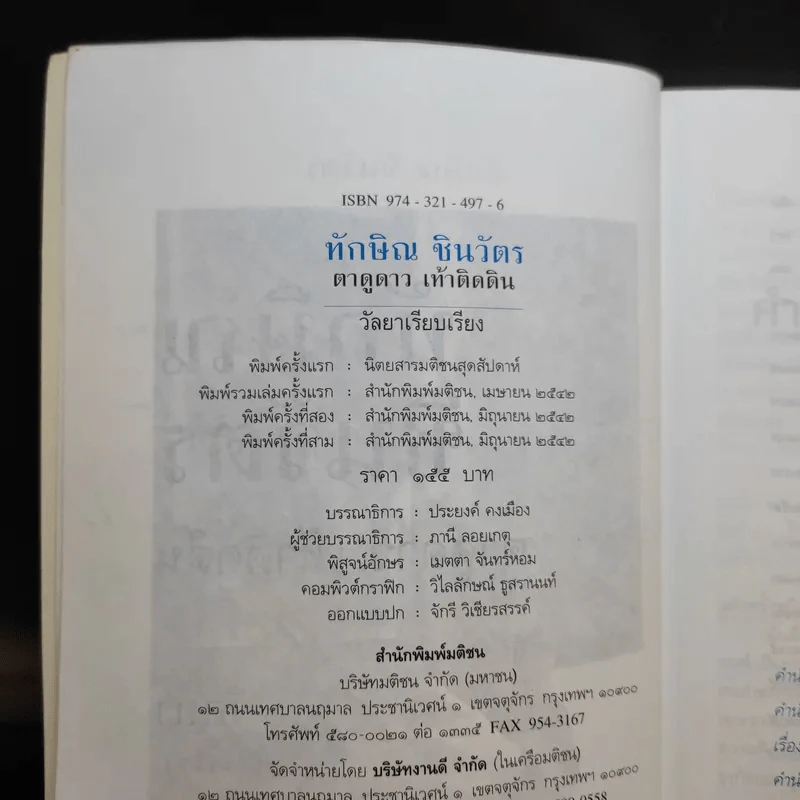 ISBN 974 - 321 - 497 - 6
ทักษิณ ชินวัตร
ตาดูดาว เท้าติดดิน
วัลยาเรียบเรียง
พิมพ์ครั้งแรก : นิตยสารมติชนสุดสัปดาห์
พิมพ์รวมเล่มครั้งแรก : สำนักพิมพ์มติชน, เมษายน ๒๕๔๒
พิมพ์ครั้งที่สอง : สำนักพิมพ์มติชน, มิถุนายน ๒๕๔๒
พิมพ์ครั้งที่สาม : สำนักพิมพ์มติชน, มิถุนายน ๒๕๔๒
ราคา ๑๕๕ บาท
บรรณาธิการ : ประยงค์ คงเมือง
ผู้ช่วยบรรณาธิการ : ภานี ลอยเกตุ
พิสูจน์อักษร : เมตตา จันทร์หอม
คอมพิวต์กราฟิก : วิไลลักษณ์ ธูสรานนท์
ออกแบบปก : จักรี วิเชียรสรรค์
สำนักพิมพ์มติชน
บริษัทมติชน จำกัด (มหาชน)
๑๒ ถนนเทศบาลนฤมาล ประชานิเวศน์ ๑ เขตจตุจักร กรุงเทพฯ ๑๐๙๐๐
โทรศัพท์ ๕๘๐-๐๐๒๑ ต่อ ๑๓๓๕ FAX 954-3167
จัดจำหน่ายโดย บริษัทงานดี จำกัด (ในเครือมติชน)
๑๒ ถนนเทศบาลนฤมาล ประชานิเวศน์ ๑ เขตจตุจักร กรุงเทพฯ ๑๐๙๐๐